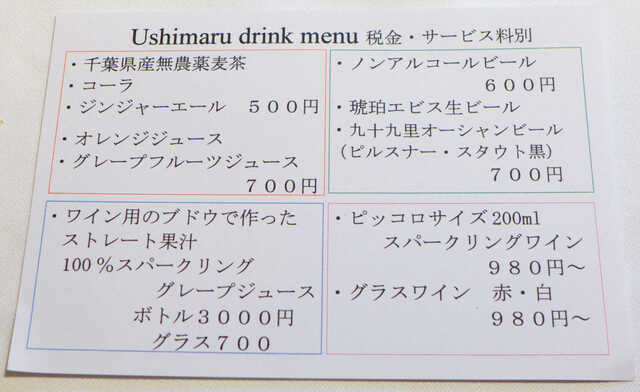 Ushimaru drink menu 税金・サービス料別
・千葉県産無農薬麦茶
・コーラ
・ジンジャーエール ５００円
・オレンジジュース
・グレープフルーツジュース
７００円
・ノンアルコールビール
６００円
・琥珀エビス生ビール
・九十九里オーシャンビール
（ピルスナー・スタウト黒）
７００円
・ワイン用のブドウで作った
ストレート果汁
100％スパークリング
グレープジュース
ボトル３０００円
グラス７００
・ピッコロサイズ 200ml
スパークリングワイン
９８０円～
・グラスワイン 赤・白
９８０円～